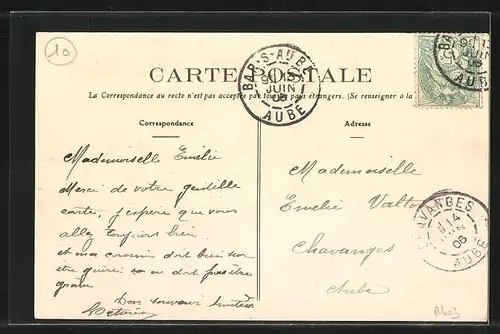 10
CARTE POSTALE
La Correspondance au recto n'est pas acceptée par tous les pays étrangers. (Se renseigner à la
Correspondance
Adresse
BAR-S-AUBE
JUIN
AUBE
AUBE
Mademoiselle Emélie
Merci de votre gentille
carte, j'espère que vous
allez toujours bien
et ma cousin doit bien sur
être guérie car on doit pas être
grave.
Bon souvenir
Mademoiselle
Emelie Valton
Chavanges
Aube
CHAVANGES
14
06
AUBE